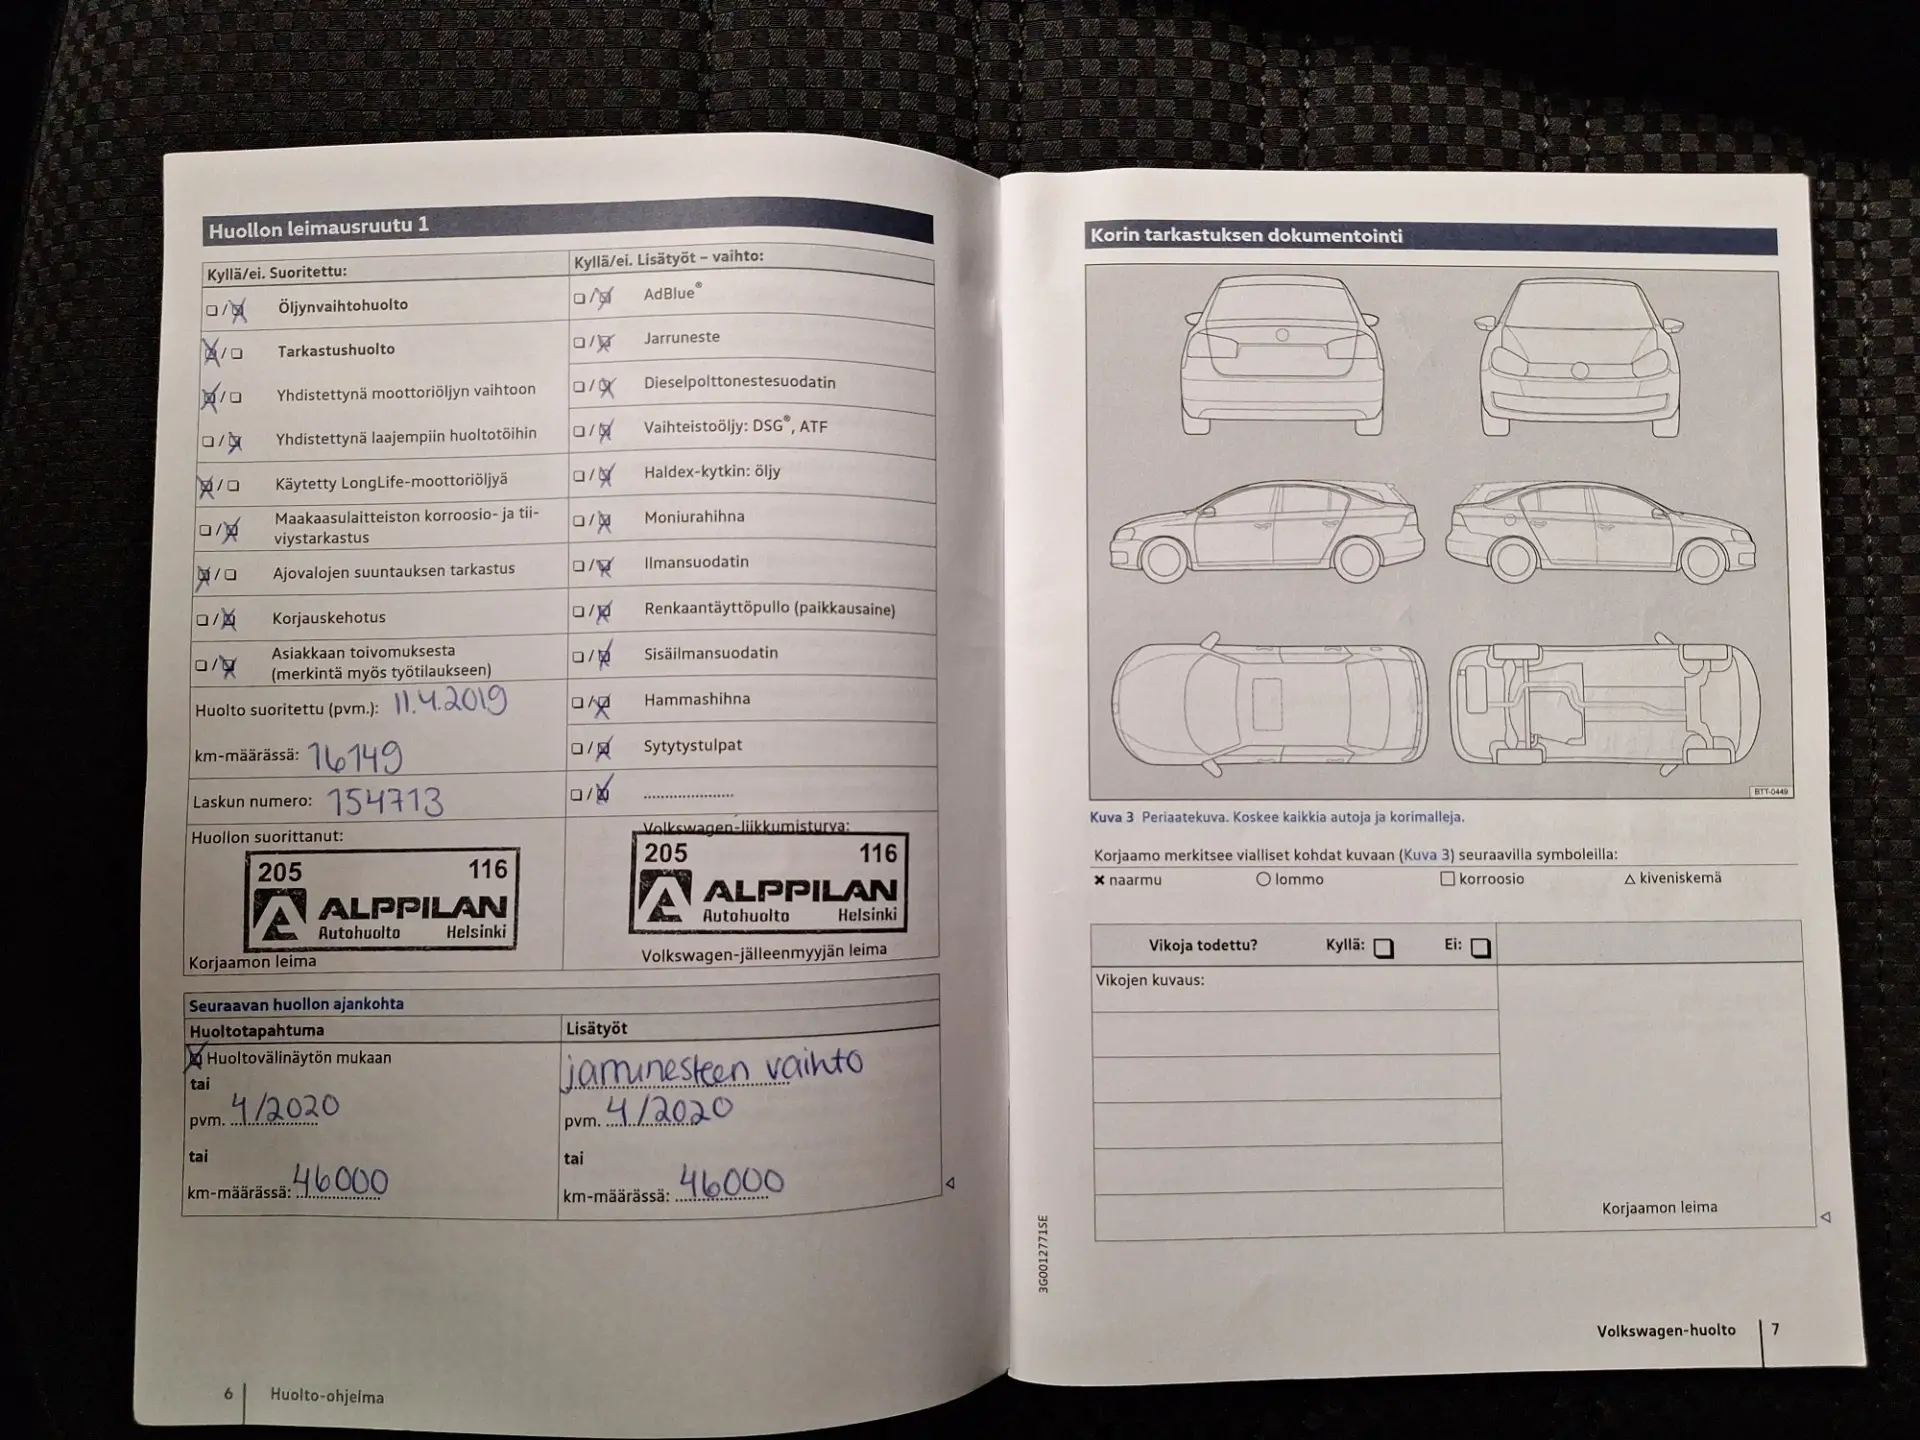 Huollon leimausruutu 1
Kyllä/ei. Suoritettu:
Öljynvaihtohuolto
Tarkastushuolto
Yhdistettynä moottoriöljyn vaihtoon
Yhdistettynä laajempiin huoltotöihin
Käytetty LongLife-moottoriöljyä
Maakaasulaitteiston korroosio- ja tii-
viystarkastus
Ajovalojen suuntauksen tarkastus
Korjauskehotus
Asiakkaan toivomuksesta
(merkintä myös työtilaukseen)
Huolto suoritettu (pvm.): 11.4.2019
km-määrässä: 16149
Laskun numero: 154713
Huollon suorittanut:
205 116
ALPPILAN
Autohuolto Helsinki
Korjaamon leima
Kyllä/ei. Lisätyöt – vaihto:
AdBlue®
Jarruneste
Dieselpolttonestesuodatin
Vaihteistoöljy: DSG®, ATF
Haldex-kytkin: öljy
Moniurahihna
Ilmansuodatin
Renkaantäyttöpullo (paikkausaine)
Sisäilmansuodatin
Hammashihna
Sytytystulpat
Volkswagen-liikkumisturva:
205 116
ALPPILAN
Autohuolto Helsinki
Volkswagen-jälleenmyyjän leima
Seuraavan huollon ajankohta
Huoltotapahtuma
Huoltovälinäytön mukaan
tai
pvm. 4/2020
tai
km-määrässä: 46000
Lisätyöt
jarrunesteen vaihto
pvm. 4/2020
tai
km-määrässä: 46000
6 Huolto-ohjelma
Korin tarkastuksen dokumentointi
BTT-0449
Kuva 3 Periaatekuva. Koskee kaikkia autoja ja korimalleja.
Korjaamo merkitsee vialliset kohdat kuvaan (Kuva 3) seuraavilla symboleilla:
naarmu lommo korroosio kiveniskemä
Vikoja todettu? Kyllä: Ei:
Vikojen kuvaus:
Korjaamon leima
3G0012771SE
Volkswagen-huolto 7